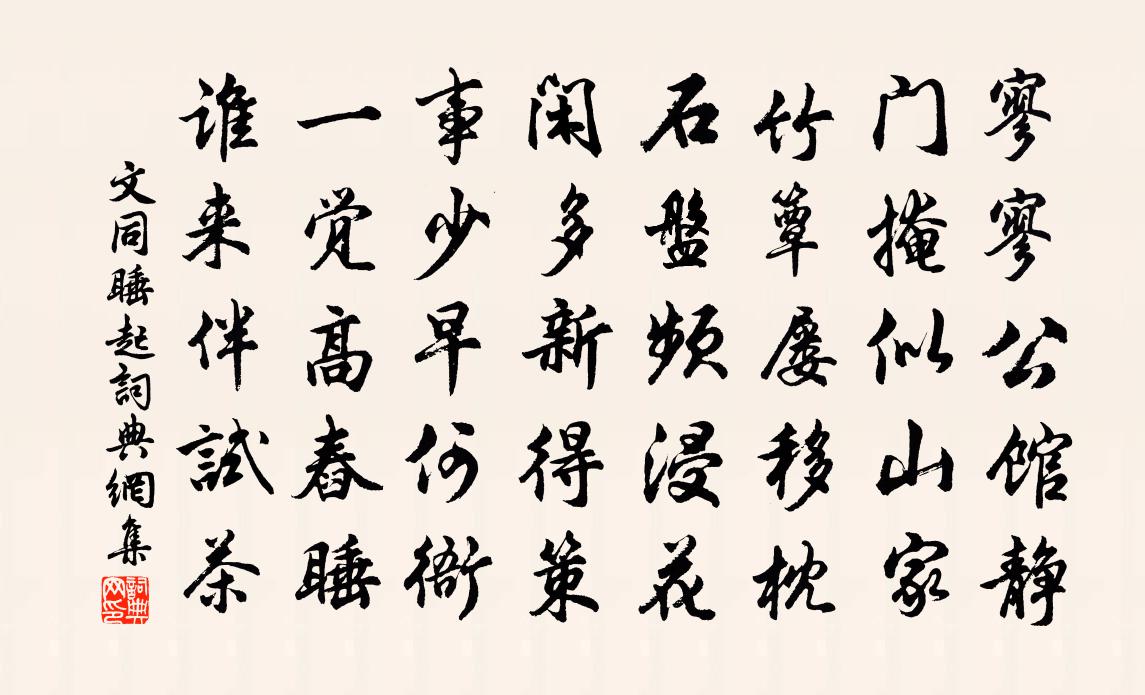 寥寥公馆静
门掩似山家
竹簟屡移枕
石盤频浸花
闲多新得策
事少早何衙
一觉高春睡
谁来伴試茶
文同睡起詞典網集
詞典网印